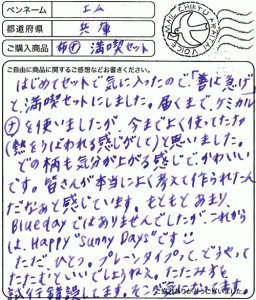 ペンネーム エム
都道府県 兵庫
ご購入商品 布ナ 満喫セット
ご自由に商品に関するご感想などお書きください。
はじめてセットで気に入ったので、「善は急げ」
と、満喫セットにしました。届くまで、ケミカル
ナを使いましたが、今までよく使ってたナ
(熱をうばわれる感じがして)と思いました。
どの柄も気分が上がる感じでかわいい
です。皆さんが本当によく考えて作られたん
だなぁと感じています。もともとあまり
Bluedayではありませんでしたが、これから
は、Happy "Sunny Days"です
ただ ひとつ。プレーンタイプって、どうやって
たたむといいでしょうねぇ。たたみ方を
試行錯誤してます。そこが